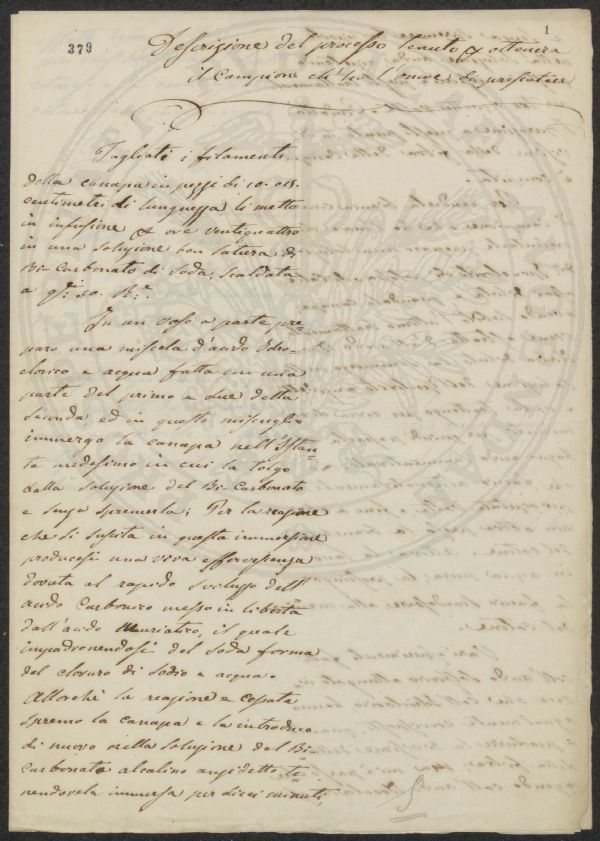 379
1
Descrizione del processo tenuto p ottenere
il Campione ch'ho l'onore di presentare
Tagliati i filamenti
della canapa in pezzi di 10. o 15.
centimetri di lunghezza li metto
in infusione p ore ventiquattro
in una soluzione ben satura di
Bi-Carbonato di Soda, scaldata
a gi: 30. R.e
In un vaso a parte pre=
paro una miscela d'acido Idro=
clorico e acqua fatta in una
parte del primo e due della
seconda ed in questo miscuglio
immergo la canapa nell'Istan=
te medesimo in cui la tolgo
dalla soluzione del Bi-Carbonato
e senza spremerla; Per la reazione
che si suscita in questa immersione
producesi una viva effervescenza
dovuta al rapido sviluppo dell'
acido Carbonico messo in libertà
dall'acido Muriatico, il quale
impadronendosi del Soda forma
del cloruro di sodio e acqua.
Allorchè la reazione è cessata
spremo la canapa e la introduco
di nuovo nella soluzione del Bi=
carbonato alcalino anzidetto te=
nendovela immersa per dieci minuti,